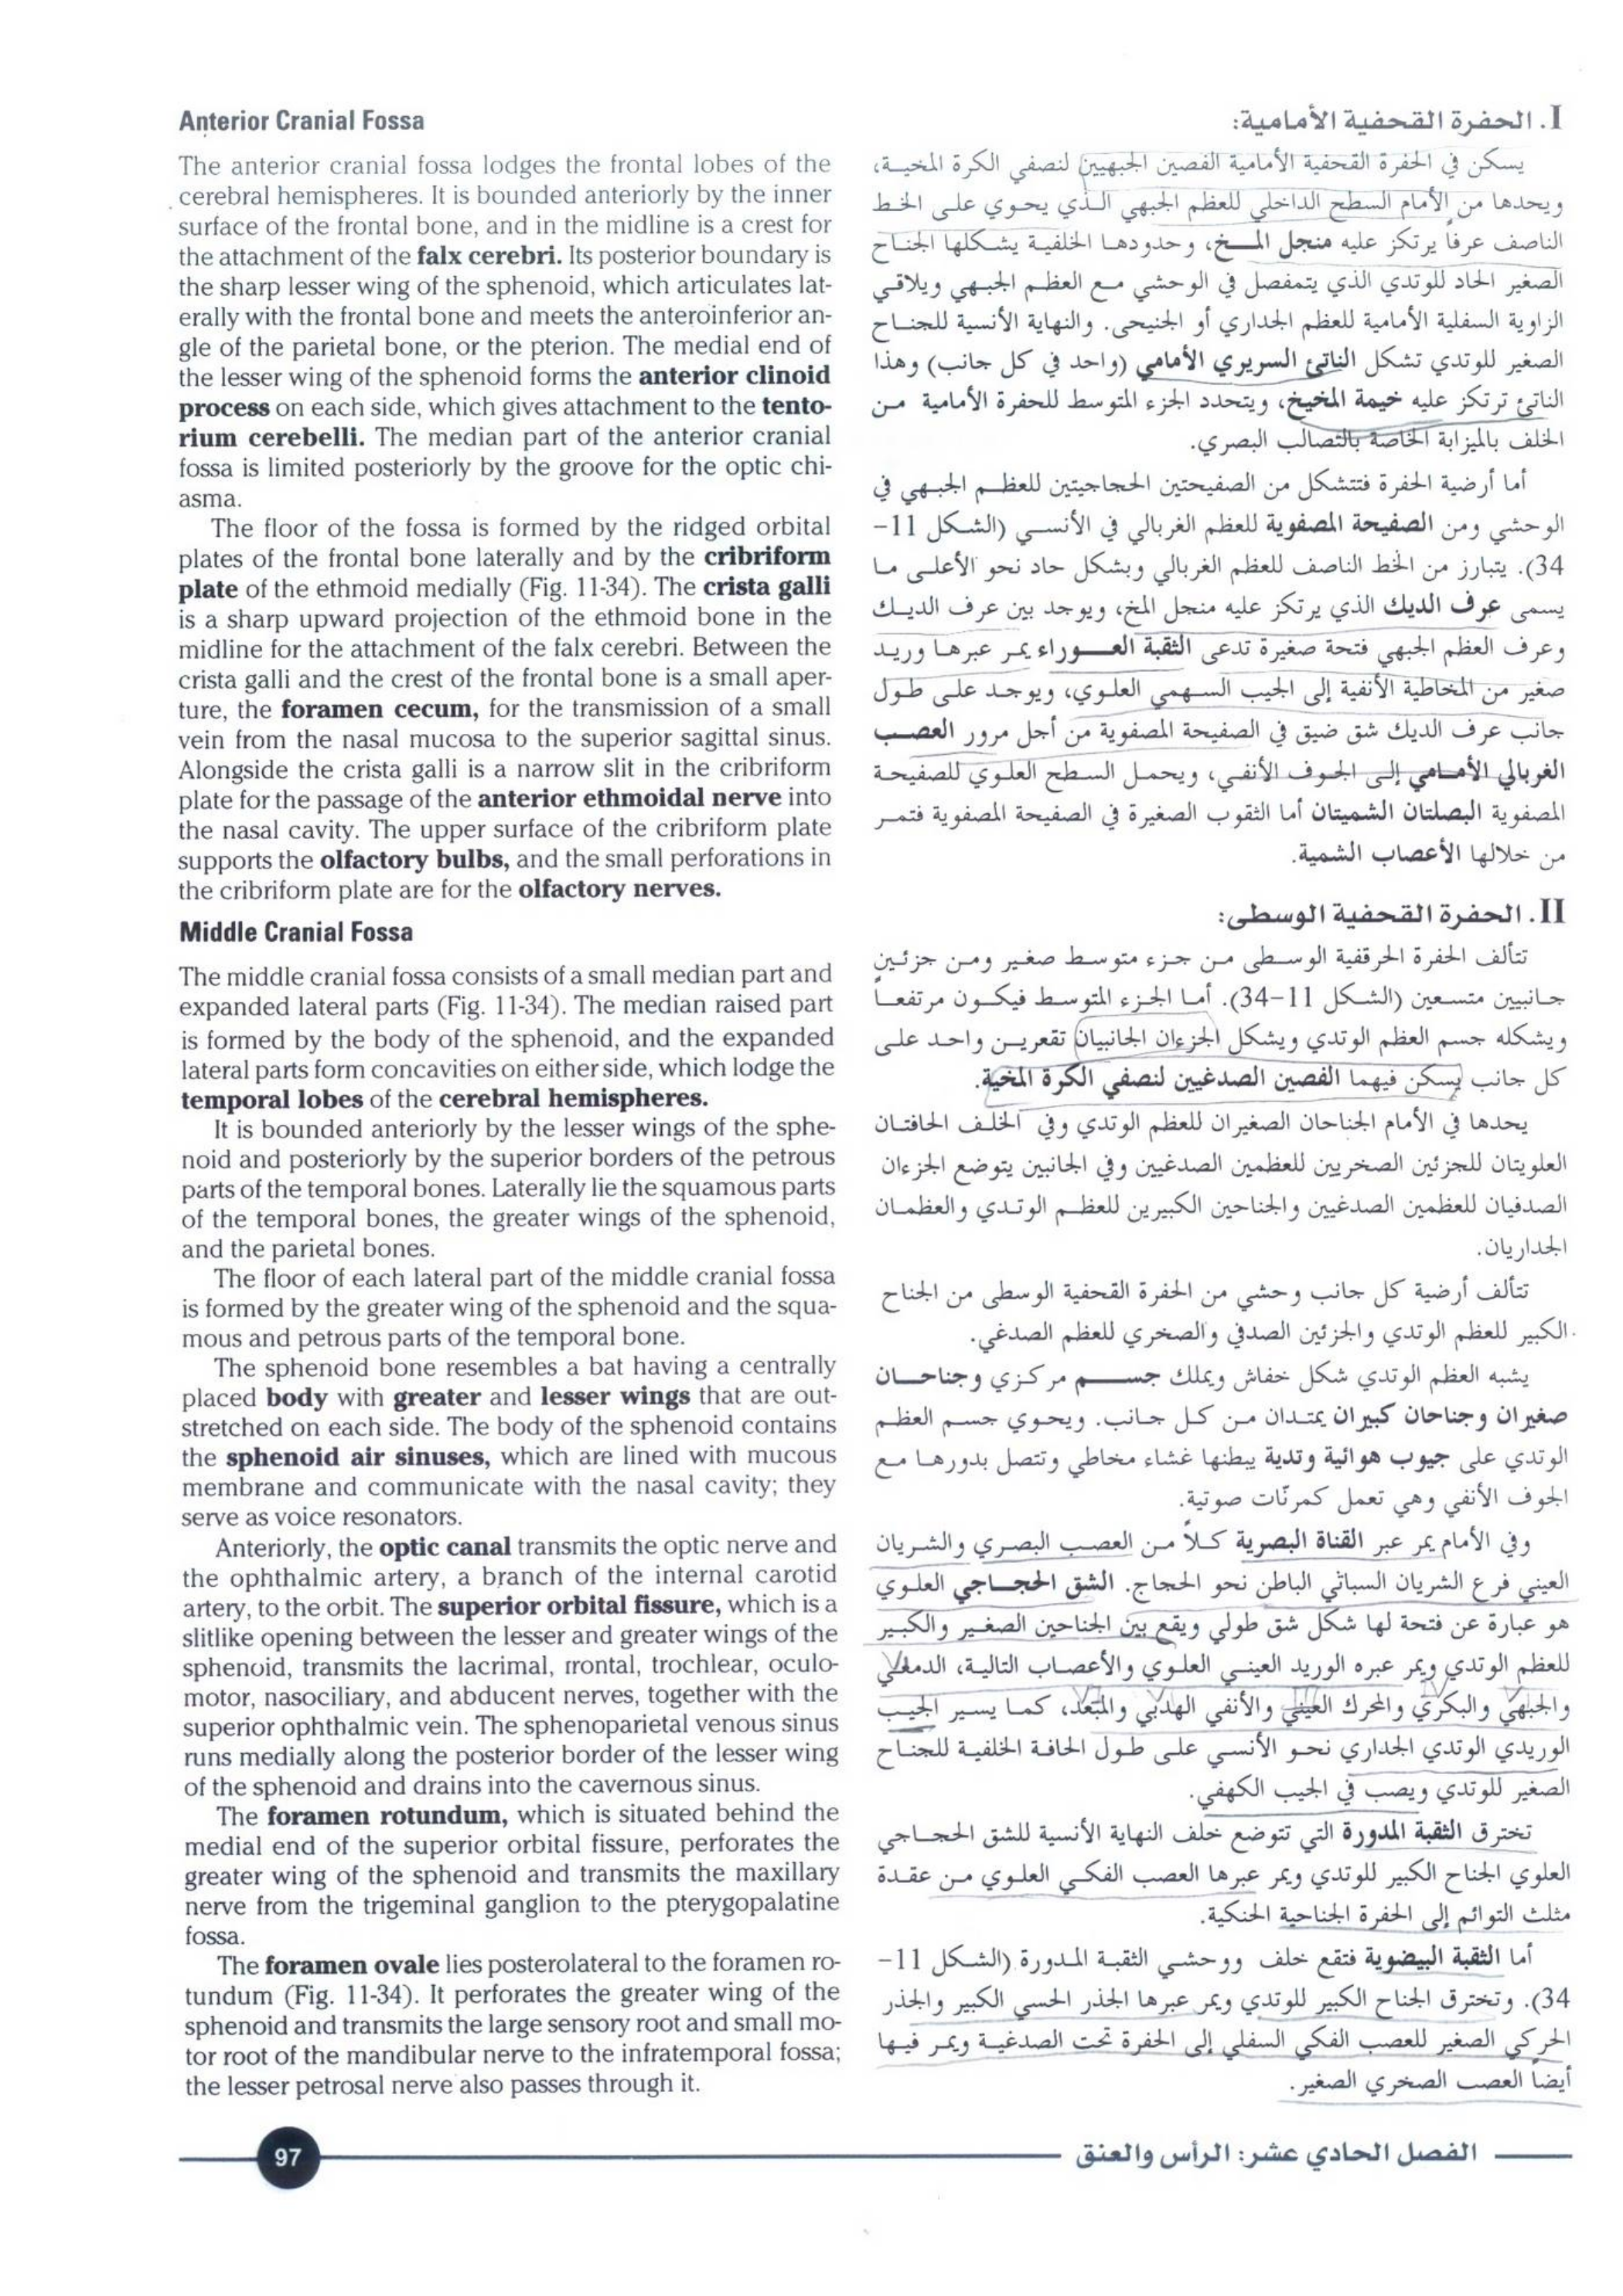 Anterior Cranial Fossa
The anterior cranial fossa lodges the frontal lobes of the
cerebral hemispheres. It is bounded anteriorly by the inner
surface of the frontal bone, and in the midline is a crest for
the attachment of the falx cerebri. Its posterior boundary is
the sharp lesser wing of the sphenoid, which articulates lat-
erally with the frontal bone and meets the anteroinferior an-
gle of the parietal bone, or the pterion. The medial end of
the lesser wing of the sphenoid forms the anterior clinoid
process on each side, which gives attachment to the tento-
rium cerebelli. The median part of the anterior cranial
fossa is limited posteriorly by the groove for the optic chi-
asma.
The floor of the fossa is formed by the ridged orbital
plates of the frontal bone laterally and by the cribriform
plate of the ethmoid medially (Fig. 11-34). The crista galli
is a sharp upward projection of the ethmoid bone in the
midline for the attachment of the falx cerebri. Between the
crista galli and the crest of the frontal bone is a small aper-
ture, the foramen cecum, for the transmission of a small
vein from the nasal mucosa to the superior sagittal sinus.
Alongside the crista galli is a narrow slit in the cribriform
plate for the passage of the anterior ethmoidal nerve into
the nasal cavity. The upper surface of the cribriform plate
supports the olfactory bulbs, and the small perforations in
the cribriform plate are for the olfactory nerves.
Middle Cranial Fossa
The middle cranial fossa consists of a small median part and
expanded lateral parts (Fig. 11-34). The median raised part
is formed by the body of the sphenoid, and the expanded
lateral parts form concavities on either side, which lodge the
temporal lobes of the cerebral hemispheres.
It is bounded anteriorly by the lesser wings of the sphe-
noid and posteriorly by the superior borders of the petrous
parts of the temporal bones. Laterally lie the squamous parts
of the temporal bones, the greater wings of the sphenoid,
and the parietal bones.
The floor of each lateral part of the middle cranial fossa
is formed by the greater wing of the sphenoid and the squa-
mous and petrous parts of the temporal bone.
The sphenoid bone resembles a bat having a centrally
placed body with greater and lesser wings that are out-
stretched on each side. The body of the sphenoid contains
the sphenoid air sinuses, which are lined with mucous
membrane and communicate with the nasal cavity; they
serve as voice resonators.
Anteriorly, the optic canal transmits the optic nerve and
the ophthalmic artery, a branch of the internal carotid
artery, to the orbit. The superior orbital fissure, which is a
slitlike opening between the lesser and greater wings of the
sphenoid, transmits the lacrimal, frontal, trochlear, oculo-
motor, nasociliary, and abducent nerves, together with the
superior ophthalmic vein. The sphenoparietal venous sinus
runs medially along the posterior border of the lesser wing
of the sphenoid and drains into the cavernous sinus.
The foramen rotundum, which is situated behind the
medial end of the superior orbital fissure, perforates the
greater wing of the sphenoid and transmits the maxillary
nerve from the trigeminal ganglion to the pterygopalatine
fossa.
The foramen ovale lies posterolateral to the foramen ro-
tundum (Fig. 11-34). It perforates the greater wing of the
sphenoid and transmits the large sensory root and small mo-
tor root of the mandibular nerve to the infratemporal fossa;
the lesser petrosal nerve also passes through it.
I. الحفرة القحفية الأمامية:
يسكن في الحفرة القحفية الأمامية الفصين الجبهيين لنصفي الكرة المخية،
ويحدها من الأمام السطح الداخلي للعظم الجبهي الذي يحوي على الخط
الناصف عرفاً يرتكز عليه منجل المخ، وحدودها الخلفية يشكلها الجناح
الصغير الحاد للوتدي الذي يتمفصل في الوحشي مع العظم الجبهي ويلاقي
الزاوية السفلية الأمامية للعظم الجداري أو الجنيحى. والنهاية الأنسية للجناح
الصغير للوتدي تشكل الناتئ السريري الأمامي (واحد في كل جانب) وهذا
الناتئ ترتكز عليه خيمة المخيخ، ويتحدد الجزء المتوسط للحفرة الأمامية من
الخلف بالميزابة الخاصة بالتصالب البصري.
أما أرضية الحفرة فتتشكل من الصفيحتين الحجاجيتين للعظم الجبهي في
الوحشي ومن الصفيحة المصفوية للعظم الغربالي في الأنسي (الشكل 11-
34). يتبارز من الخط الناصف للعظم الغربالي وبشكل حاد نحو الأعلى ما
يسمى عرف الديك الذي يرتكز عليه منجل المخ، ويوجد بين عرف الديك
وعرف العظم الجبهي فتحة صغيرة تدعى الثقبة العوراء يمر عبرها وريد
صغير من المخاطية الأنفية إلى الجيب السهمي العلوي، ويوجد على طول
جانب عرف الديك شق ضيق في الصفيحة المصفوية من أجل مرور العصب
الغربالي الأمامي إلى الجوف الأنفي، ويحمل السطح العلوي للصفيحة
المصفوية البصلتان الشميتان أما الثقوب الصغيرة في الصفيحة المصفوية فتمر
من خلالها الأعصاب الشمية.
II. الحفرة القحفية الوسطى:
تتألف الحفرة الحرقفية الوسطى من جزء متوسط صغير ومن جزئين
جانبيين متسعين (الشكل 11-34). أما الجزء المتوسط فيكون مرتفعاً
ويشكله جسم العظم الوتدي ويشكل الجزءان الجانبيان تقعرين واحد على
كل جانب يسكن فيهما الفصين الصدغيين لنصفي الكرة المخية.
يحدها في الأمام الجناحان الصغيران للعظم الوتدي وفي الخلف الحافتان
العلويتان للجزئين الصخريين للعظمين الصدغيين وفي الجانبين يتوضع الجزءان
الصدفيان للعظمين الصدغيين والجناحين الكبيرين للعظم الوتدي والعظمان
الجداريان.
تتألف أرضية كل جانب وحشي من الحفرة القحفية الوسطى من الجناح
الكبير للعظم الوتدي والجزئين الصدفي والصخري للعظم الصدغي.
يشبه العظم الوتدي شكل خفاش ويملك جسم مركزي وجناحان
صغيران وجناحان كبيران يمتدان من كل جانب. ويحوي جسم العظم
الوتدي على جيوب هوائية وتدية يبطنها غشاء مخاطي وتتصل بدورها مع
الجوف الأنفي وهي تعمل كمرنّات صوتية.
وفي الأمام يمر عبر القناة البصرية كلاً من العصب البصري والشريان
العيني فرع الشريان السباتي الباطن نحو الحجاج. الشق الحجاجي العلوي
هو عبارة عن فتحة لها شكل شق طولي ويقع بين الجناحين الصغير والكبير
للعظم الوتدي ويمر عبره الوريد العيني العلوي والأعصاب التالية، الدمعي
والجبهي والبكري والمحرك العيني والأنفي الهدبي والمبعد، كما يسير الجيب
الوريدي الوتدي الجداري نحو الأنسي على طول الحافة الخلفية للجناح
الصغير للوتدي ويصب في الجيب الكهفي.
تخترق الثقبة المدورة التي تتوضع خلف النهاية الأنسية للشق الحجاجي
العلوي الجناح الكبير للوتدي ويمر عبرها العصب الفكي العلوي من عقدة
مثلث التوائم إلى الحفرة الجناحية الحنكية.
أما الثقبة البيضوية فتقع خلف ووحشي الثقبة المدورة (الشكل 11-
34). وتخترق الجناح الكبير للوتدي ويمر عبرها الجذر الحسي الكبير والجذر
الحركي الصغير للعصب الفكي السفلي إلى الحفرة تحت الصدغية ويمر فيها
أيضاً العصب الصخري الصغير.
97
الفصل الحادي عشر: الرأس والعنق